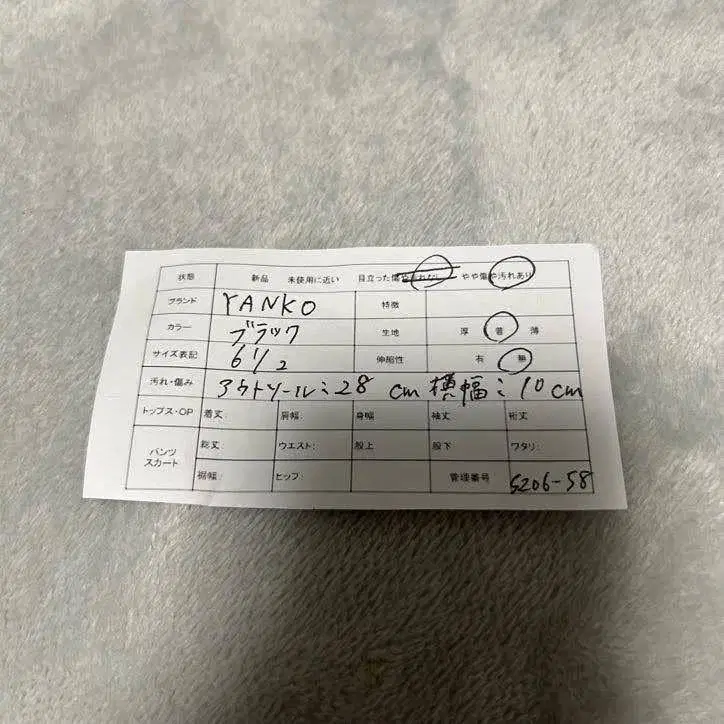 状態 新品 未使用に近い 目立った傷や汚れなし やや傷や汚れあり
ブランド YANKO 特徴
カラー ブラック 生地 厚 普 薄
サイズ表記 6 1/2 伸縮性 有 無
汚れ・傷み アウトソール:28cm 横幅:10cm
トップス・OP 着丈: 肩幅: 身幅 袖丈 裄丈:
パンツ スカート 総丈: ウエスト: 股上 股下 ワタリ:
裾幅: ヒップ: 管理番号 S206-58